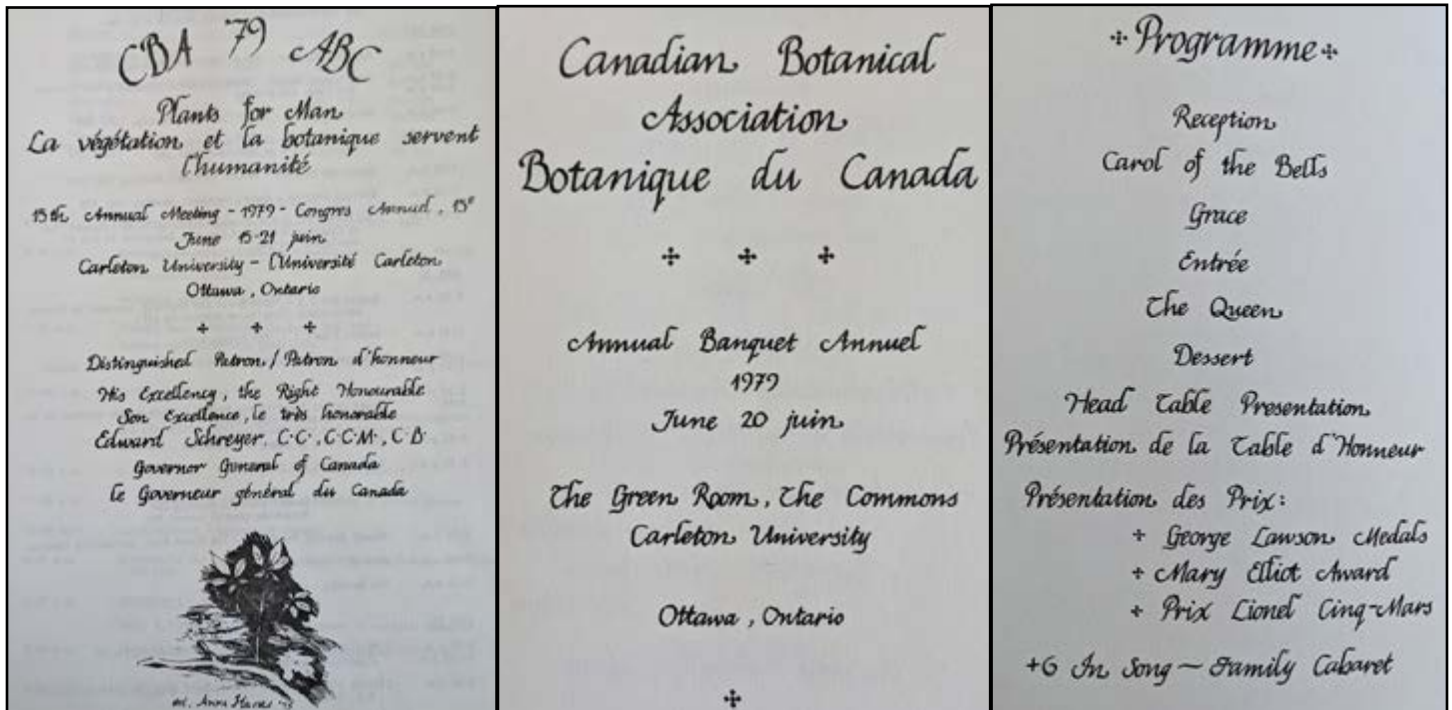 CBA '79 ABC
Plants for Man
La végétation et la botanique servent
l'humanité
15th Annual Meeting - 1979 - Congres Annuel, 15e
June 15-21 juin
Carleton University - L'Université Carleton
Ottawa, Ontario
Distinguished Patron / Patron d'honneur
His Excellency, the Right Honourable
Son Excellence, le très honorable
Edward Schreyer, C.C., C.C.M., C.D.
Governor General of Canada
le Governeur général du Canada
Canadian Botanical
Association
Botanique du Canada
Annual Banquet Annuel
1979
June 20 juin
The Green Room, The Commons
Carleton University
Ottawa, Ontario
Programme
Reception
Carol of the Bells
Grace
Entrée
The Queen
Dessert
Head Table Presentation
Présentation de la Table d'Honneur
Présentation des Prix:
+ George Lawson Medals
+ Mary Elliot Award
+ Prix Lionel Cinq-Mars
+6 In Song ~ Family Cabaret